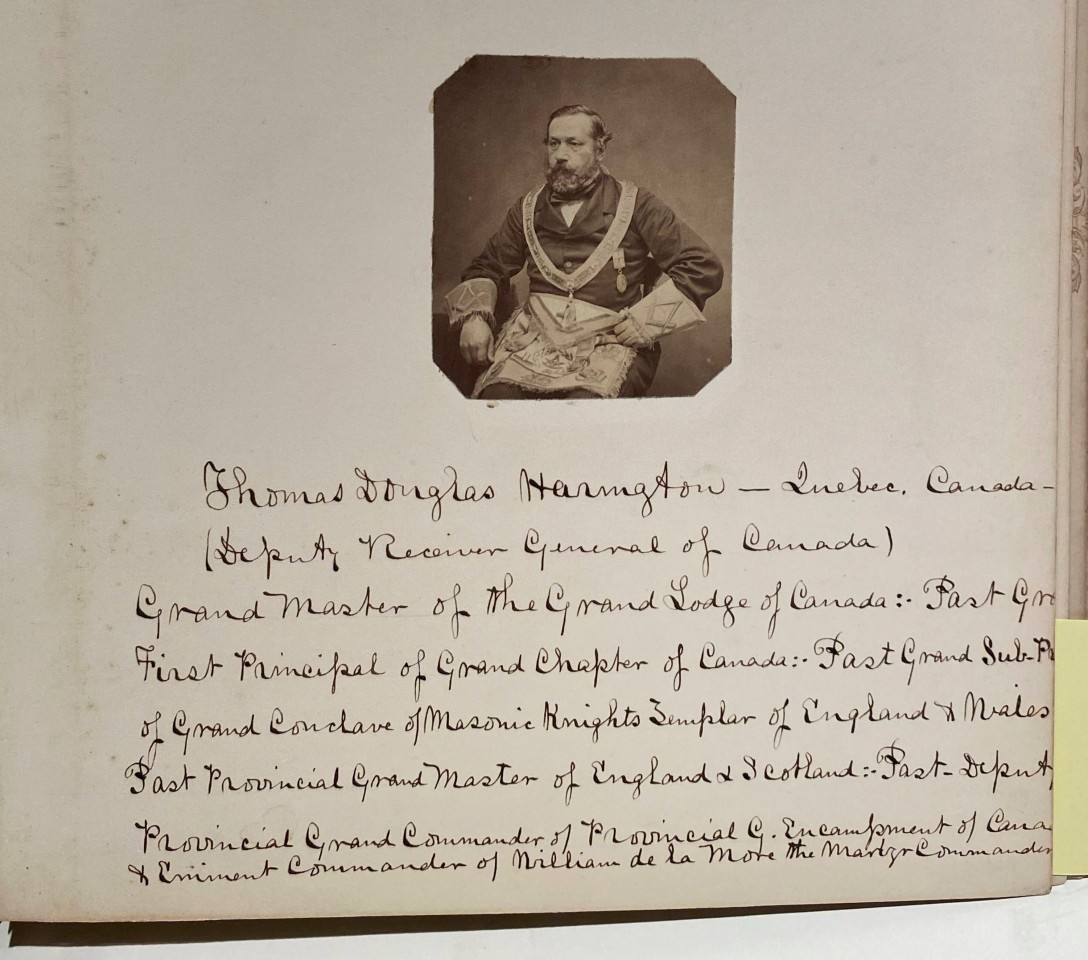 Thomas Douglas Harington — Quebec. Canada —
(Deputy Receiver General of Canada)
Grand Master of the Grand Lodge of Canada:- Past Gra
First Principal of Grand Chapter of Canada:- Past Grand Sub-Pr
of Grand Conclave of Masonic Knights Templar of England & Wales
Past Provincial Grand Master of England & Scotland:- Past- Deputy
Provincial Grand Commander of Provincial G. Encampment of Cana
& Eminent Commander of William de la More the Martyr Commander